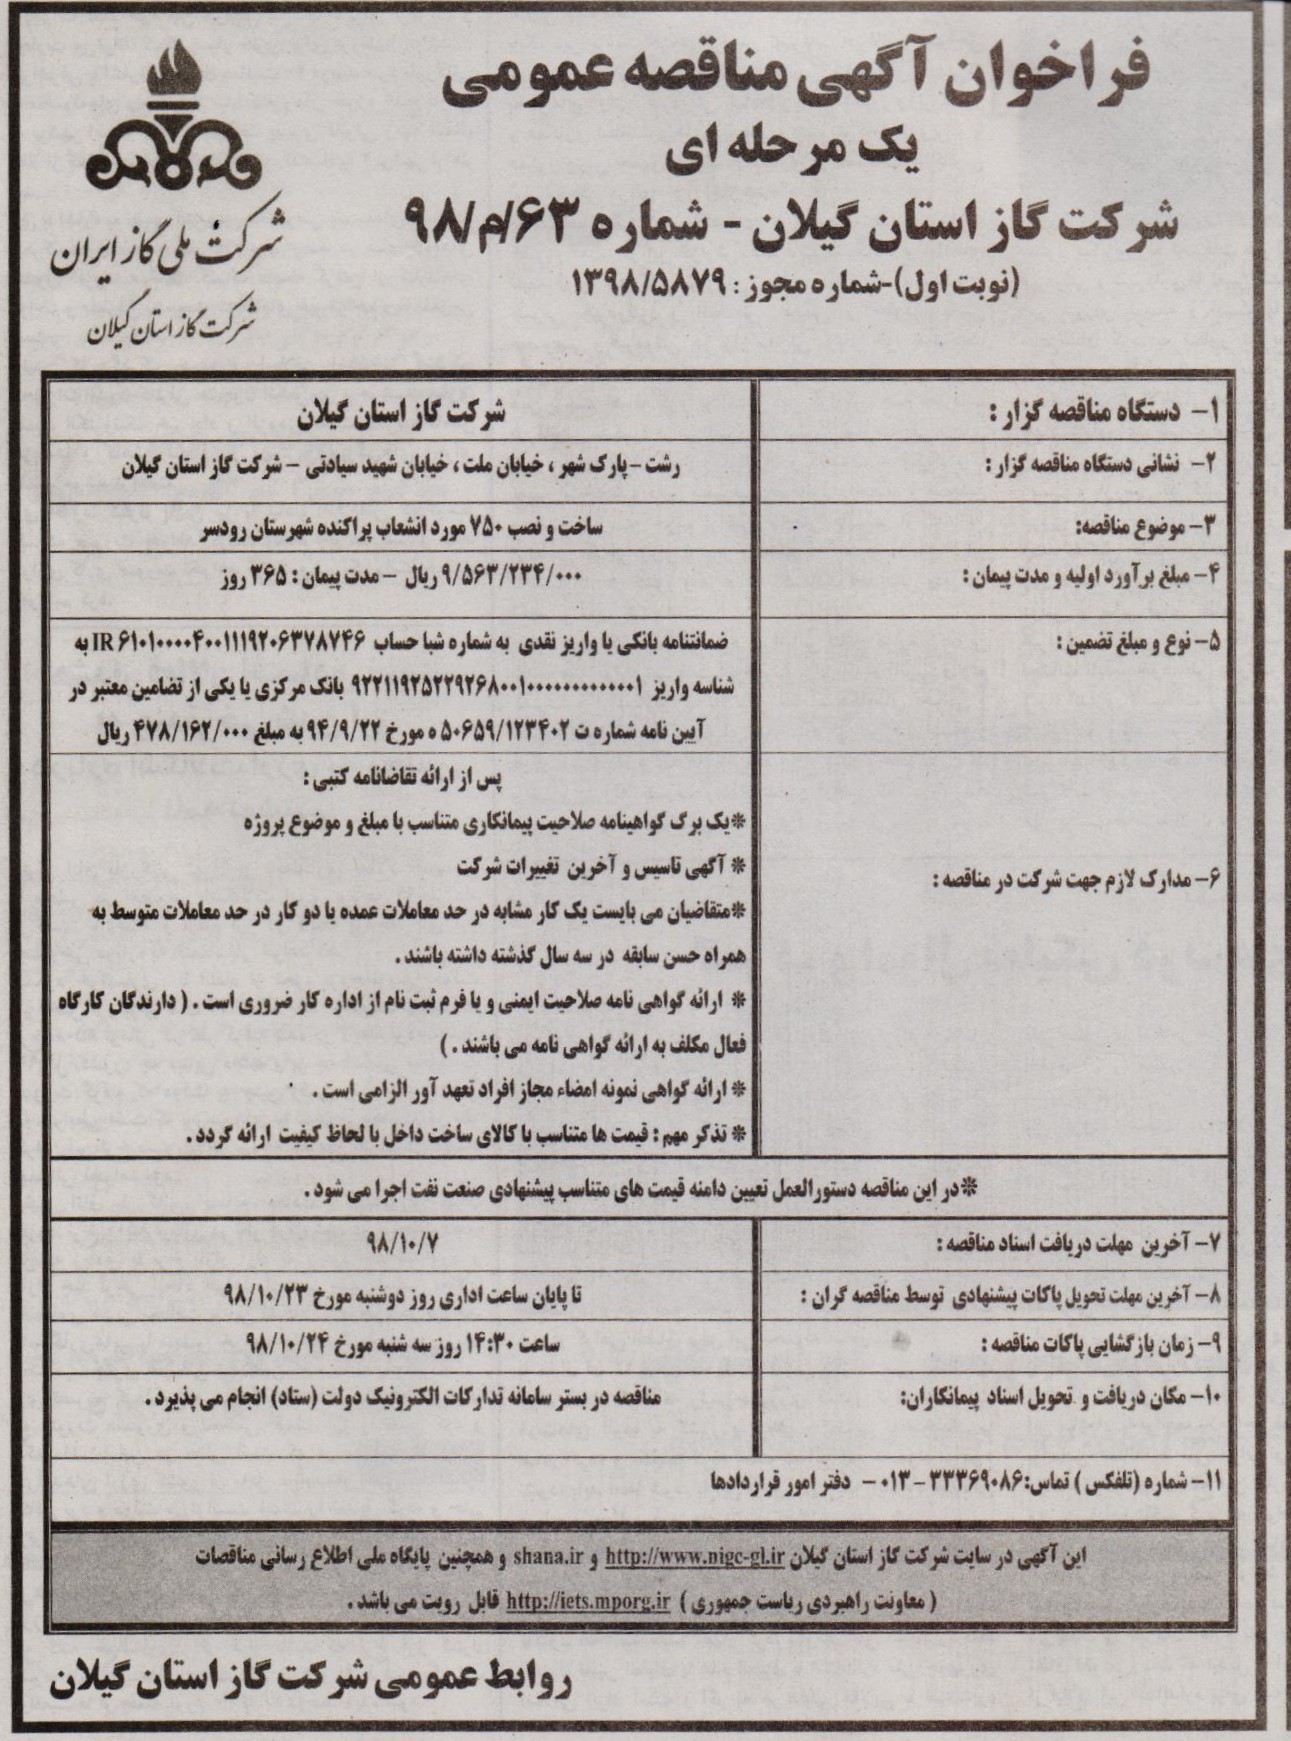 فراخوان آگهی مناقصه عمومی
یک مرحله ای
شرکت گاز استان گیلان - شماره ۶۳/م/۹۸
(نوبت اول)-شماره مجوز: ۱۳۹۸/۵۸۷۹
شرکت ملی گاز ایران
شرکت گاز استان گیلان
۱- دستگاه مناقصه گزار :
شرکت گاز استان گیلان
۲- نشانی دستگاه مناقصه گزار :
رشت -پارک شهر ، خیابان ملت ، خیابان شهید سیادتی - شرکت گاز استان گیلان
۳- موضوع مناقصه:
ساخت و نصب ۷۵۰ مورد انشعاب پراکنده شهرستان رودسر
۴- مبلغ برآورد اولیه و مدت پیمان :
۹/۵۶۳/۲۳۴/۰۰۰ ریال - مدت پیمان : ۳۶۵ روز
۵- نوع و مبلغ تضمین :
ضمانتنامه بانکی یا واریز نقدی به شماره شبا حساب IR ۶۱۰۱۰۰۰۰۴۰۰۱۱۱۹۲۰۶۳۷۸۷۴۶ به
شناسه واریز ۹۲۲۱۱۹۲۵۲۲۹۲۶۸۰۰۱۰۰۰۰۰۰۰۰۰۰۰۰۱ بانک مرکزی یا یکی از تضامین معتبر در
آیین نامه شماره ت ۵۰۶۵۹/۱۲۳۴۰۲ ه مورخ ۹۴/۹/۲۲ به مبلغ ۴۷۸/۱۶۲/۰۰۰ ریال
۶- مدارک لازم جهت شرکت در مناقصه :
پس از ارائه تقاضانامه کتبی :
*یک برگ گواهینامه صلاحیت پیمانکاری متناسب با مبلغ و موضوع پروژه
* آگهی تاسیس و آخرین تغییرات شرکت
*متقاضیان می بایست یک کار مشابه در حد معاملات عمده یا دو کار در حد معاملات متوسط به
همراه حسن سابقه در سه سال گذشته داشته باشند .
* ارائه گواهی نامه صلاحیت ایمنی و یا فرم ثبت نام از اداره کار ضروری است . ( دارندگان کارگاه
فعال مکلف به ارائه گواهی نامه می باشند . )
* ارائه گواهی نمونه امضاء مجاز افراد تعهد آور الزامی است .
* تذکر مهم : قیمت ها متناسب با کالای ساخت داخل با لحاظ کیفیت ارائه گردد .
*در این مناقصه دستورالعمل تعیین دامنه قیمت های متناسب پیشنهادی صنعت نفت اجرا می شود .
۷- آخرین مهلت دریافت اسناد مناقصه :
۹۸/۱۰/۷
۸- آخرین مهلت تحویل پاکات پیشنهادی توسط مناقصه گران :
تا پایان ساعت اداری روز دوشنبه مورخ ۹۸/۱۰/۲۳
۹- زمان بازگشایی پاکات مناقصه :
ساعت ۱۴:۳۰ روز سه شنبه مورخ ۹۸/۱۰/۲۴
۱۰- مکان دریافت و تحویل اسناد پیمانکاران:
مناقصه در بستر سامانه تدارکات الکترونیک دولت (ستاد) انجام می پذیرد .
۱۱- شماره (تلفکس ) تماس: ۳۳۳۶۹۰۸۶ - ۰۱۳ - دفتر امور قراردادها
این آگهی در سایت شرکت گاز استان گیلان http://www.nigc-gl.ir و shana.ir و همچنین پایگاه ملی اطلاع رسانی مناقصات
( معاونت راهبردی ریاست جمهوری ) http://iets.mporg.ir قابل رویت می باشد .
روابط عمومی شرکت گاز استان گیلان